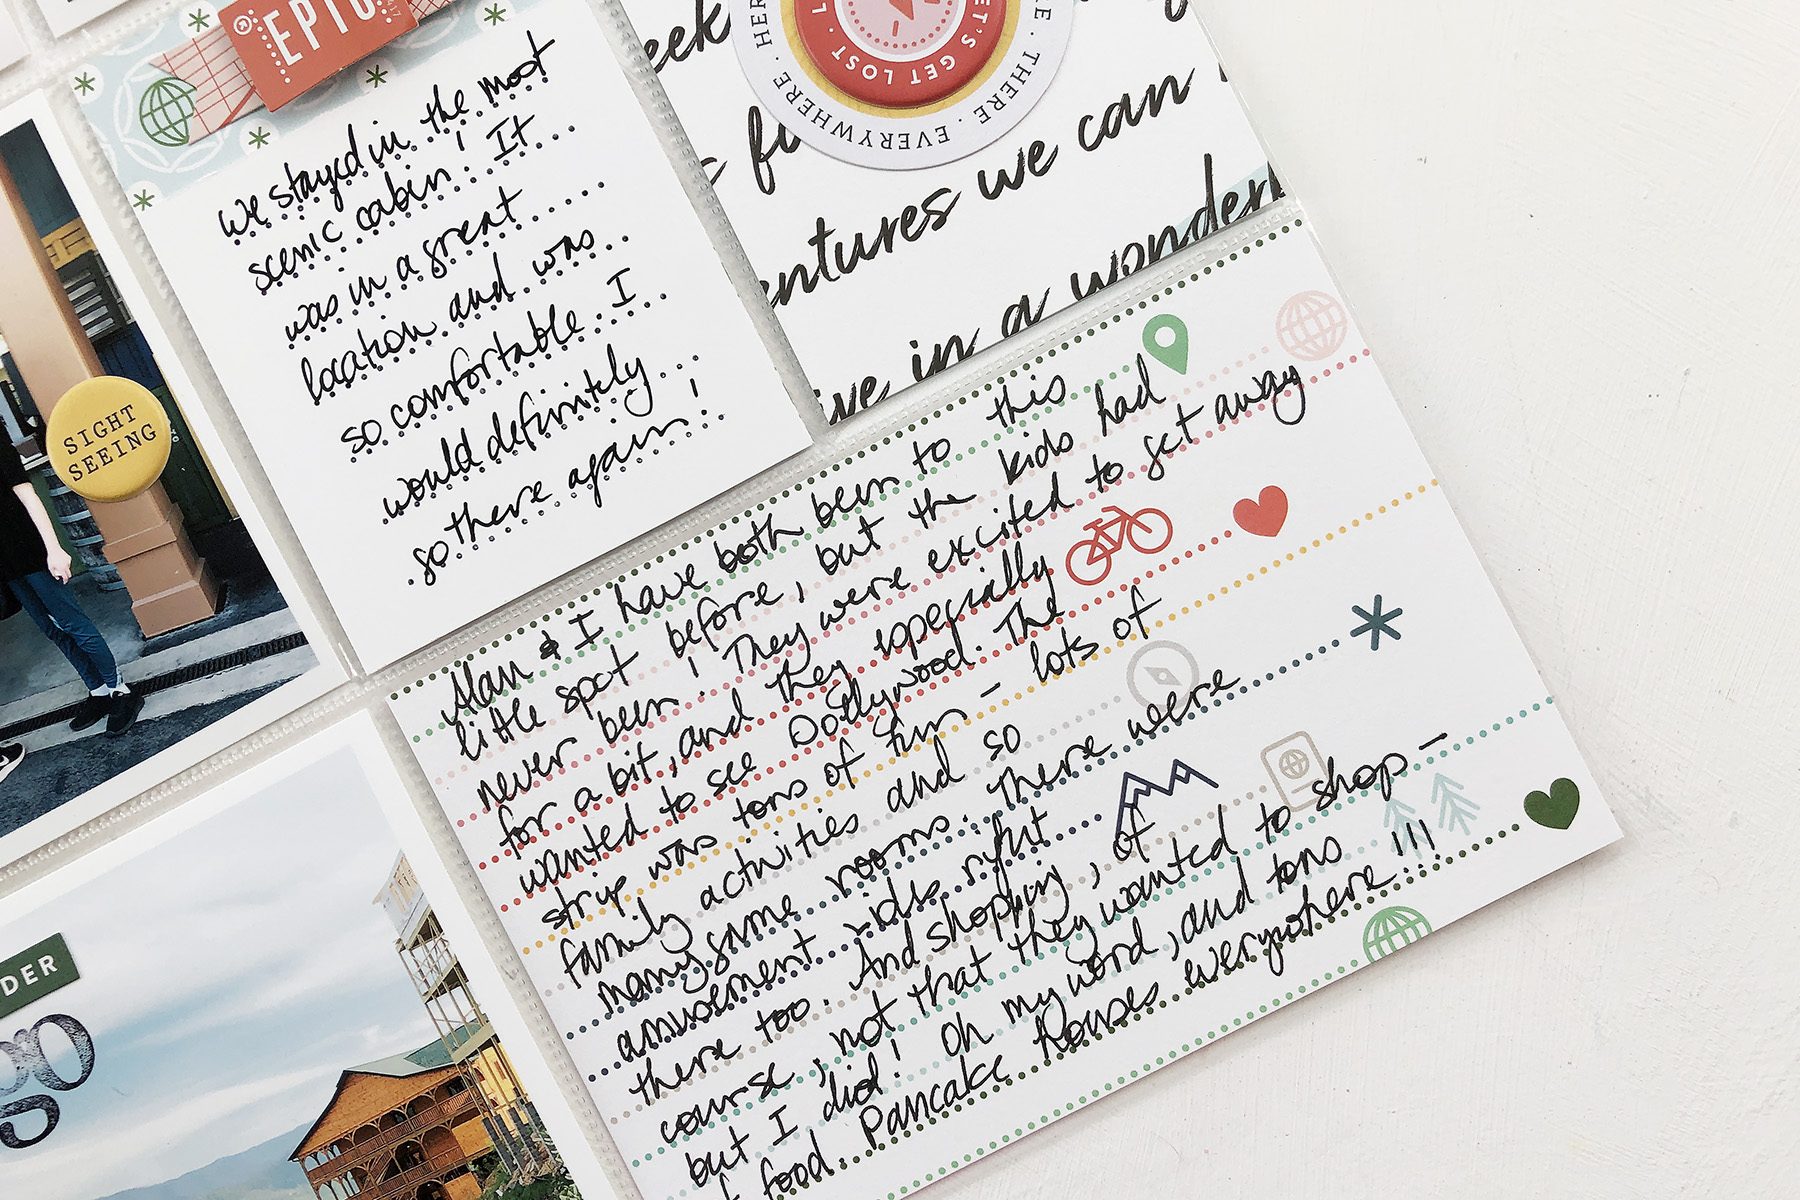 EPIC
we stayed in the most
scenic cabin! It
was in a great
location and was
so comfortable. I
would definitely
go there again!
HERE · THERE · EVERYWHERE
GET LOST · LET'S
eek
entures we can
ive in a wonder
SIGHT
SEEING
Alan & I have both been to this
little spot before, but the kids had
never been! They were excited to get away
for a bit, and they especially
wanted to see Dollywood. The
strip was tons of fun - lots of
family activities and so
many game rooms. There were
amusement rides right
there too. And shopping, of
course, not that they wanted to shop -
but I did! Oh my word, and tons
of food. Pancake houses everywhere!!!
DER
go